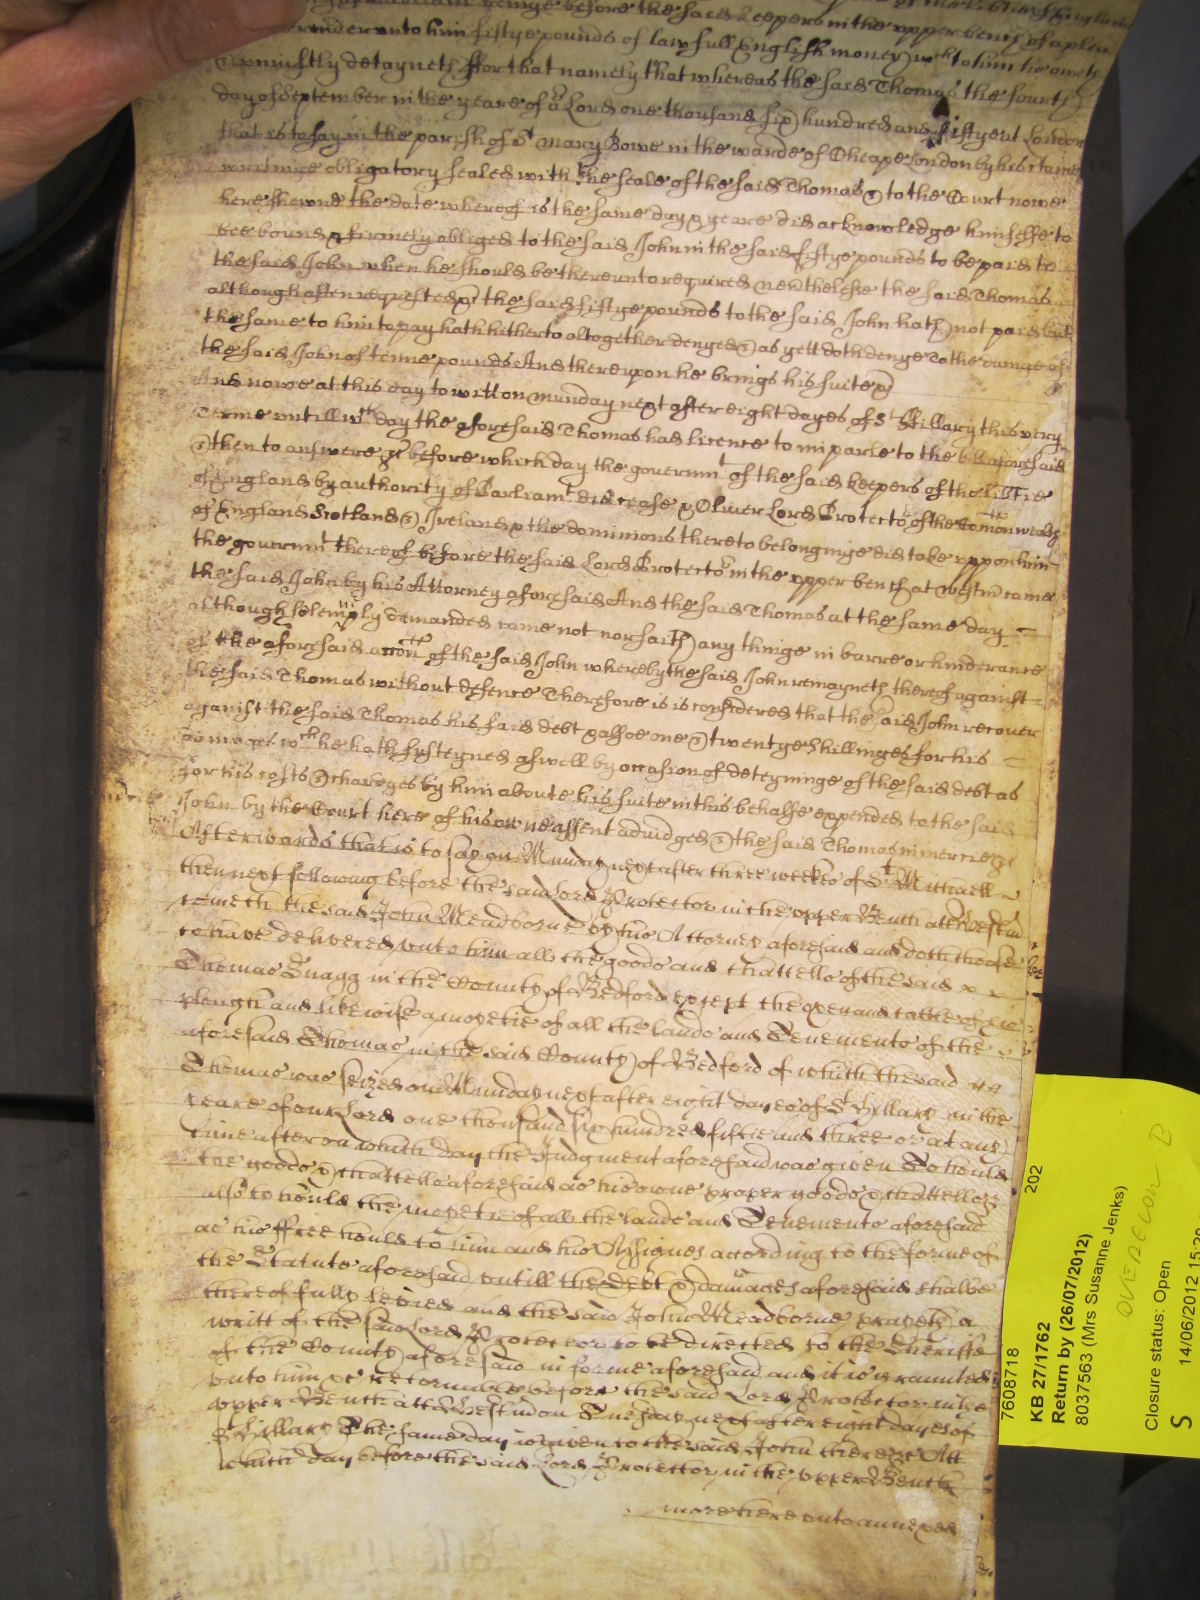 before the said Keepers in the upper bench of a plea
render unto him fiftye pounds of lawfull English money wch to him he oweth
& uniustly detayneth ffor that namely that whereas the said Thomas the fourth
day of September in the yeare of or Lord one thousand six hundred and fiftye at London
that is to say in the parish of St Mary Bowe in the warde of Cheape London by his certaine
writinge obligatory sealed with the seale of the said Thomas & to the Court nowe
here shewne the date whereof is the same day & yeare did acknowledge himselfe to
bee bound & firmely obliged to the said John in the said fiftye pounds to be paid to
the said John when he should be thereunto required neverthelesse the said Thomas
although often requested &c the said fiftye pounds to the said John hath not paid but
the same to him to pay hath hitherto altogether denyed & as yett doth denye To the damage of
the said John of tenne pounds And thereupon he brings his suite &c
And nowe at this day to witt on munday next after eight dayes of St Hillary this very
Terme untill wch day the aforesaid Thomas had licence to imparle to the bill aforesaid
& then to answere &c before which day the governmt of the said keepers of the libtie
of England by authority of Parliamt did cease & Oliver Lord Protector of the Comonwealth
of England Scotland & Ireland & the dominions thereto belonginge did take uppon him
the governmt thereof before the said Lord Protector in the upper bench at Westmr came
the said John by his Attorney aforesaid And the said Thomas at the same day
although solemply demanded came not nor saith any thinge in barre or hinderance
of the aforesaid accon of the said John whereby the said John remayneth thereof against
the said Thomas without defence Therefore is is considered that the said John recover
against the said Thomas his said debt & alsoe one & twentye shillinges for his
damages wch he hath susteyned aswell by occasion of deteyninge of the said debt as
for his costs & charges by him aboute his suite in this behalfe expended to the said
John by the Court here of his owne assent adiudged & the said Thomas in mercie &c
Afterwards that is to say on Munday next after three weekes of St Michaell
then next following before the said Lord Protector in the upper Bench att Westm
cometh the said John Meadborne by his Attorney aforesaid and doth choose
to have delivered unto him all the goods and chattells of the said
Thomas Snagg in the County of Bedford except the oxen and cattle of his
plough and likewise a moyetie of all the lands and Tenements of the
aforesaid Thomas in the said County of Bedford of which the said
Thomas was seized on Munday next after eight dayes of St Hillary in the
yeare of our Lord one thousand six hundred fiftie and three or at any
time after on which day the Iudgment aforesaid was given To hould
the goods & chattells aforesaid as his owne proper goods & chattells
also to hould the moyetie of all the lands and Tenements aforesaid
as his ffree hould to him and his Assignes according to the forme of
the Statute aforesaid untill the Debt & damages aforesaid shalbe
thereof fully levied and the said John Meadborne prayeth a
writt of the said Lord Protector to be directed to the Sheriffe
of the County aforesaid in forme aforesaid and it is graunted
unto him &c retornable before the said Lord Protector in the
upper Bench att Westm on Tuesday next after eight dayes of
St Hillary The same day is given to the said John there &c Att
which day before the said Lord Protector in the upper Bench
more here unto annexed
7608718 202
KB 27/1762
Return by (26/07/2012)
8037563 (Mrs Susanne Jenks)
OVERSEAS B
Closure status: Open
S 14/06/2012